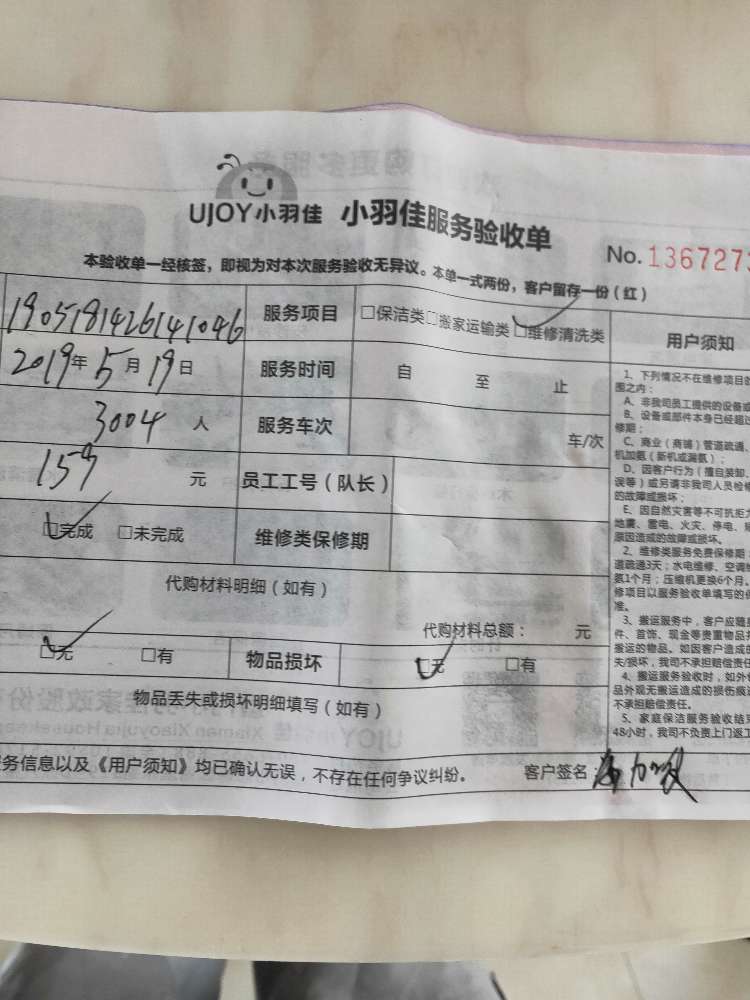 UJOY小羽佳 小羽佳服务验收单
No.1367273
本验收单一经核签，即视为对本次服务验收无异议。本单一式两份，客户留存一份（红）
190518142614 1046 服务项目 □保洁类□搬家运输类□维修清洗类
2019年5月19日 服务时间 自 至 止
3004 人 服务车次 车/次
159 元 员工工号（队长）
□完成 □未完成 维修类保修期
代购材料明细（如有）
代购材料总额： 元
□无 □有 物品损坏 □无 □有
物品丢失或损坏明细填写（如有）
务信息以及《用户须知》均已确认无误，不存在任何争议纠纷。 客户签名
用户须知
1、下列情况不在维修项目
围之内：
A、非我司员工提供的设备或
B、设备或部件本身已经超过
修期；
C、商业（商铺）管道疏通、
机加氨（新机或漏氨）；
D、因客户行为（擅自装卸、
误等）或另请非我司人员检修
的故障或损坏；
E、因自然灾害等不可抗拒
地震、雷电、火灾、停电、
原因造成的故障或损坏。
2、维修类服务免费保修期
道疏通3天；水电维修、空调
氨1个月；压缩机更换6个月。
修项目以服务验收单填写的
准。
3、搬运服务中，客户应随
件、首饰、现金等贵重物品
搬运的物品。如因客户造成的
失/损坏，我司不承担赔偿责任
4、搬运服务验收时，如外
品外观无搬运造成的损伤痕
不承担赔偿责任。
5、家庭保洁服务验收结
48小时，我司不负责上门返工